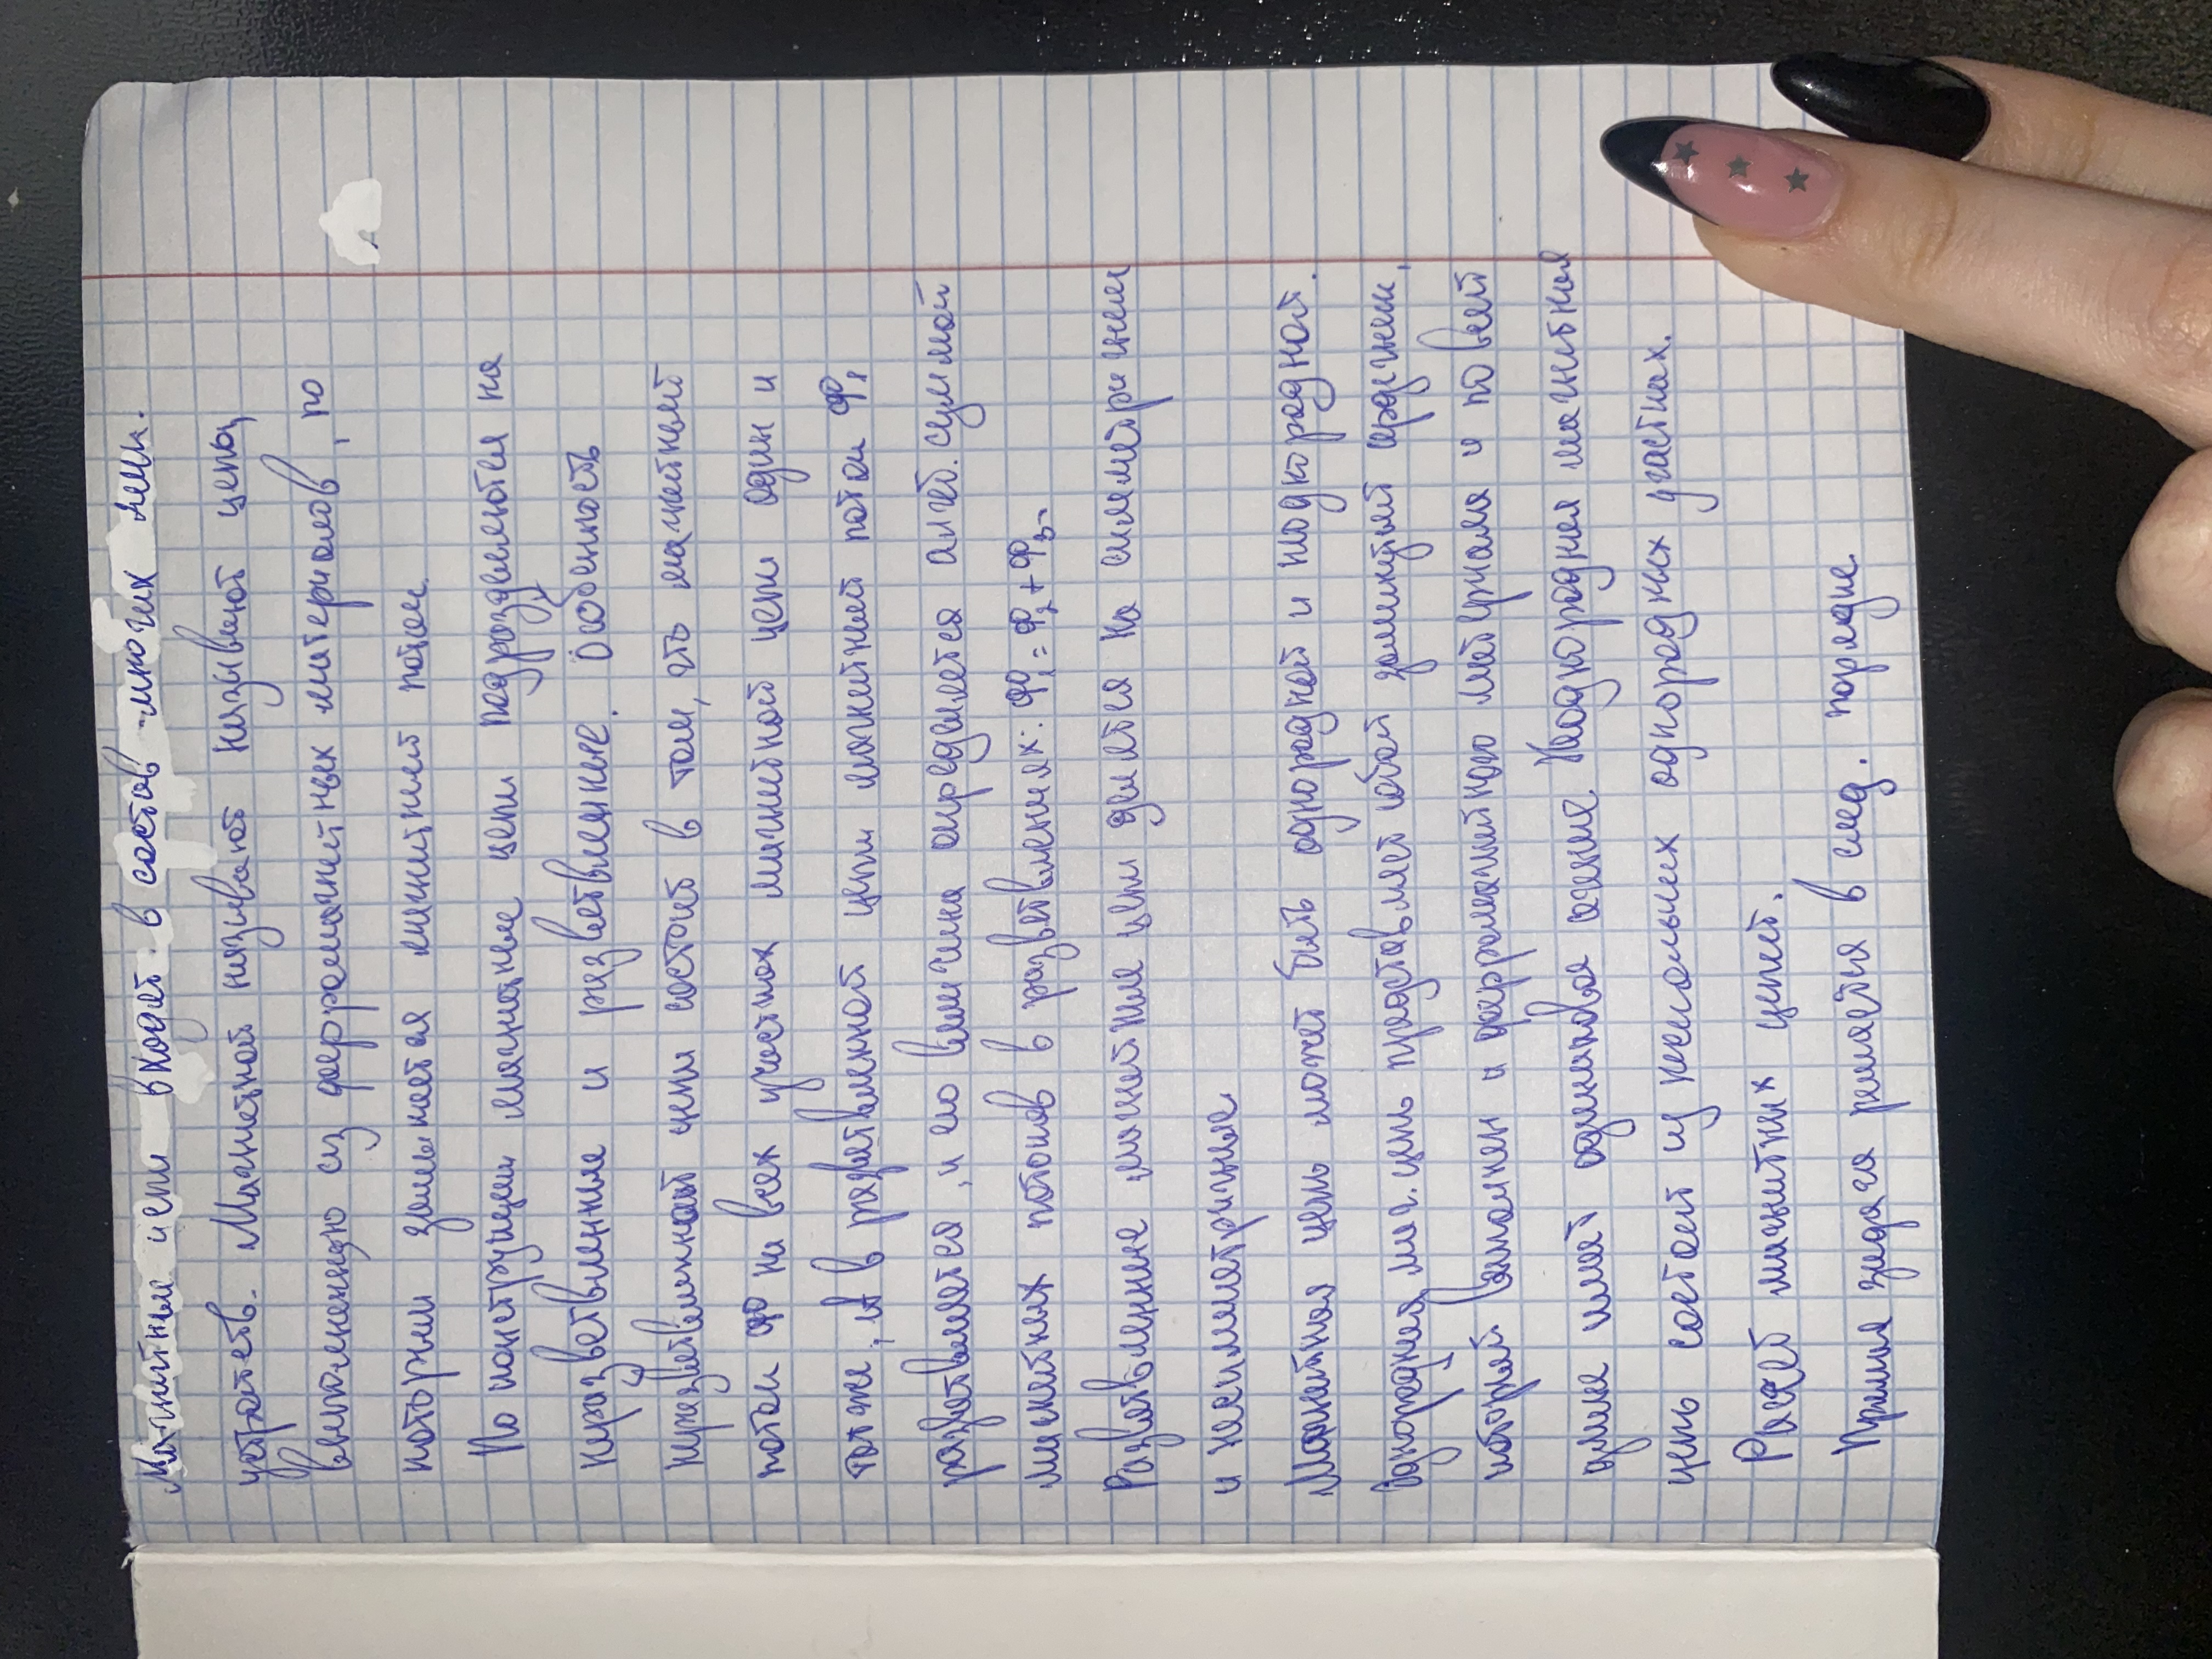 Магнитные цепи входят в состав многих элек.
устройств. Магнитной называют называют цепь,
выполненную из ферромагнитных материалов, по
которым замыкается магнитный поток.
По конструкции магнитные цепи подразделяются на
неразветвленные и разветвленные. Особенность
неразветвленной цепи состоит в том, что магнитный
поток Ф на всех участках магнитной цепи один и
тот же, а в разветвленной цепи магнитный поток Ф₁
разветвляется, и его величина определяется алгеб. суммой
магнитных потоков в разветвлениях: Ф₁ = Ф₂ + Ф₃
Разветвленные магнитные цепи делятся на симметричные
и несимметричные
Магнитная цепь может быть однородной и неоднородной.
Однородная маг. цепь представляет собой замкнутый сердечник,
который выполнен из ферромагнитного материала и по всей
длине имеет одинаковое сечение. Неоднородная магнитная
цепь состоит из нескольких однородных участках.
Расчёт магнитных цепей.
Прямая задача решается в след. порядке